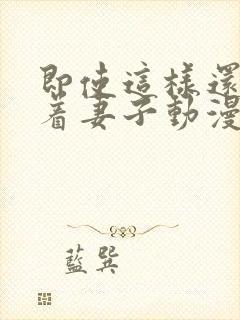 即使這樣還
着妻子動漫
藍巽